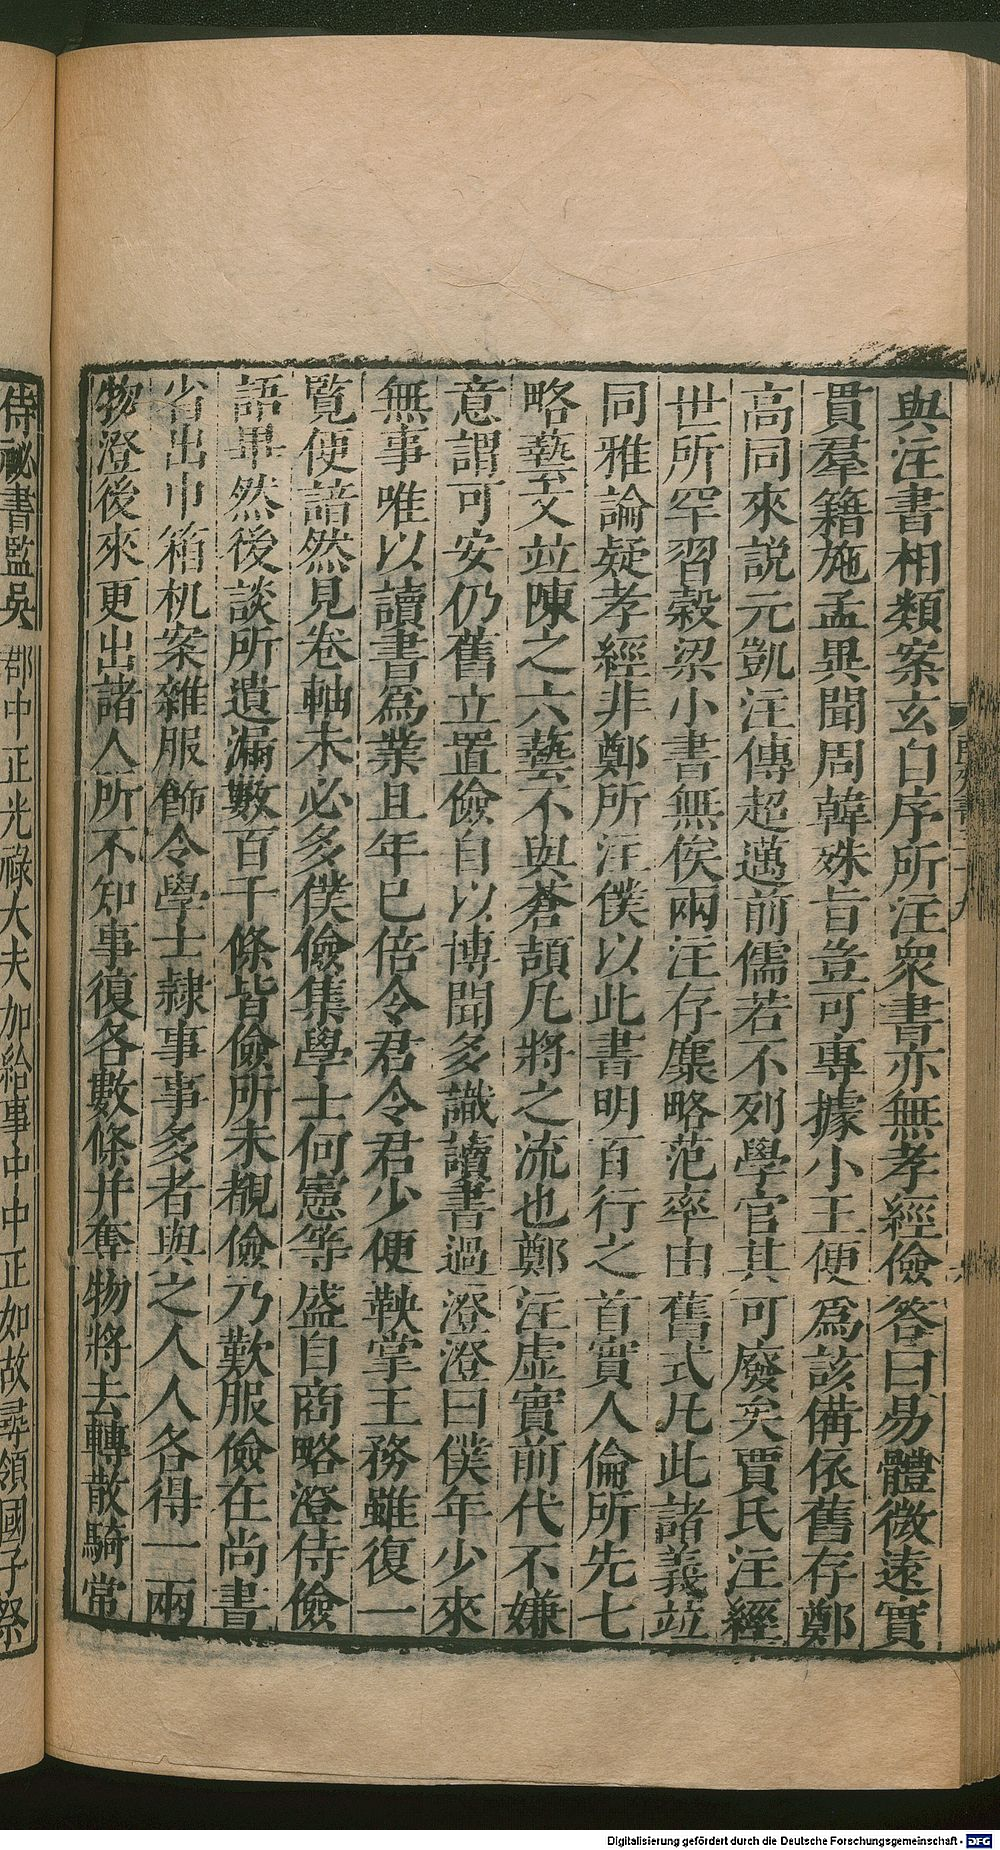 與注書相類案玄自序所注衆書亦無孝經儉答曰易體微遠實
貫羣籍施孟異聞周韓殊旨豈可專據小王便爲該備依舊存鄭
高同來説元凱注傳超邁前儒若不列學官其可廢矣賈氏注經
世所罕習穀梁小書無俟兩注存麋略范率由舊式凡此諸義竝
同雅論疑孝經非鄭所注僕以此書明百行之首實人倫所先七
略藝文竝陳之六藝不與蒼頡凡將之流也鄭注虚實前代不嫌
意謂可安仍舊立置儉自以博聞多識讀書過澄澄曰僕年少來
無事唯以讀書爲業且年已倍令君令君少便鞅掌王務雖復一
覽便諳然見卷軸未必多僕儉集學士何憲等盛自商略澄侍儉
語畢然後談所遺漏數百千條皆儉所未覩儉乃歎服儉在尚書
省出巾箱机案雜服飾令學士隷事事多者與之人人各得一二兩
物澄後來更出諸人所不知事復各數條并奪物將去轉散騎常
侍祕書監吳郡中正光祿大夫加給事中中正如故尋領國子祭
Digitalisierung gefördert durch die Deutsche Forschungsgemeinschaft - DFG